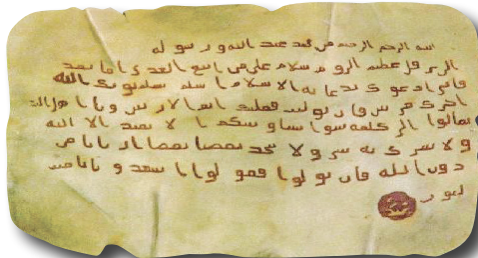 بسم الله الرحمن الرحيم من محمد عبد الله ورسوله
الى هرقل عظيم الروم سلام على من اتبع الهدى اما بعد
فانى ادعوك بدعاية الاسلام اسلم تسلم يوتك الله
اجرك مرتين فان توليت فعليك اثم الاريسيين ويا اهل الكتب
تعالوا الى كلمة سوا بيننا وبينكم ا لا نعبد الا الله
ولا نشرك به شيا ولا يتخذ بعضنا بعضا اربابا من
دون الله فان تولوا فقولوا اشهدوا بانا مس
لمون